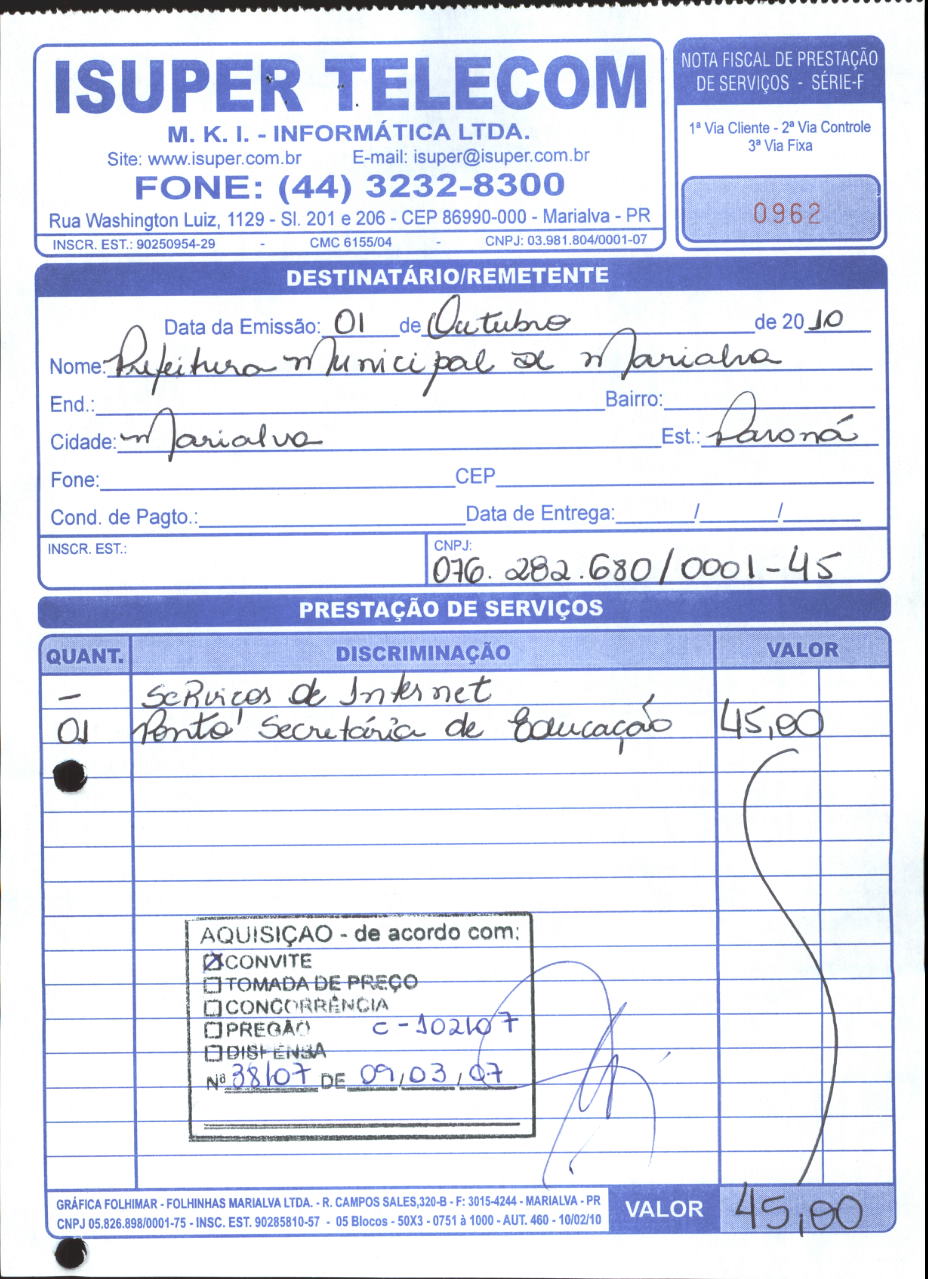 ISUPER TELECOM
M. K. I. - INFORMÁTICA LTDA.
Site: www.isuper.com.br E-mail: isuper@isuper.com.br
FONE: (44) 3232-8300
Rua Washington Luiz, 1129 - Sl. 201 e 206 - CEP 86990-000 - Marialva - PR
INSCR. EST.: 90250954-29 - CMC 6155/04 - CNPJ: 03.981.804/0001-07
NOTA FISCAL DE PRESTAÇÃO
DE SERVIÇOS - SÉRIE-F
1ª Via Cliente - 2ª Via Controle
3ª Via Fixa
0962
DESTINATÁRIO/REMETENTE
Data da Emissão: 01 de Outubro de 2010
Nome: Prefeitura Municipal de Marialva
End.: Bairro:
Cidade: Marialva Est.: Paraná
Fone: CEP
Cond. de Pagto.: Data de Entrega: / /
INSCR. EST.: CNPJ:
076.282.680/0001-45
PRESTAÇÃO DE SERVIÇOS
QUANT. DISCRIMINAÇÃO VALOR
- Serviços de Internet
01 Ponto Secretária de Educação 45,00
AQUISIÇAO - de acordo com:
CONVITE
TOMADA DE PREÇO
CONCORRÊNCIA
PREGÃO C-102107
DISPENSA
Nº 38/07 DE 09/03/07
GRÁFICA FOLHIMAR - FOLHINHAS MARIALVA LTDA. - R. CAMPOS SALES,320-B - F: 3015-4244 - MARIALVA - PR
CNPJ 05.826.898/0001-75 - INSC. EST. 90285810-57 - 05 Blocos - 50X3 - 0751 à 1000 - AUT. 460 - 10/02/10
VALOR 45,00